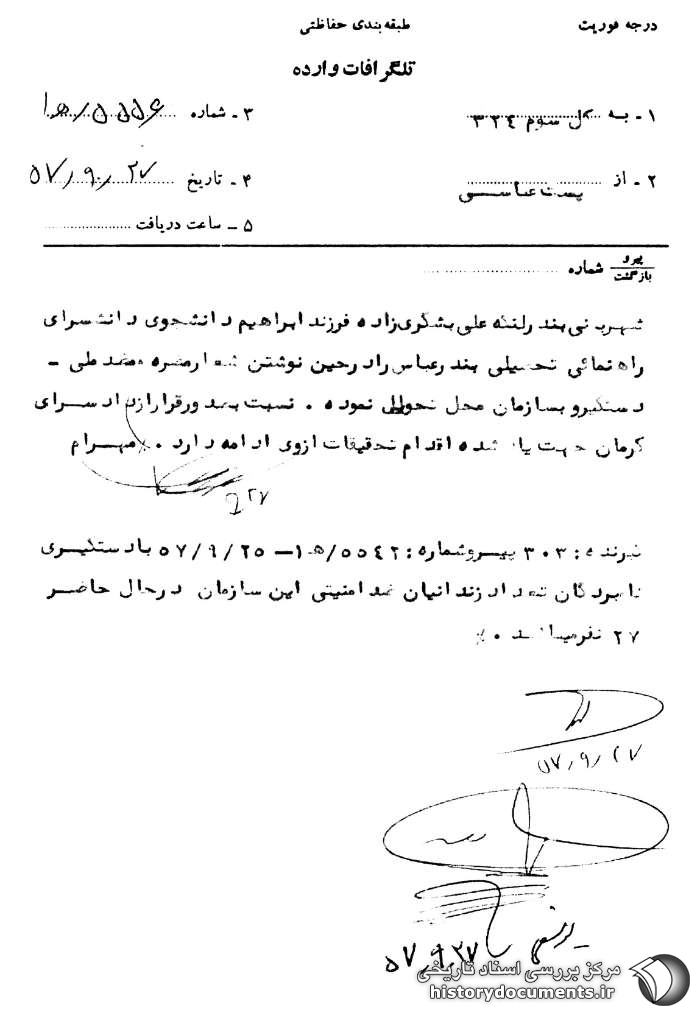 درجه فوریت
طبقه‌بندی حفاظتی
تلگرافات وارده
۱ - به کل سوم ۳۳۴
۳ - شماره ۵۵۵۶/ه‍ ۱
۲ - از
۴ - تاریخ ۵۷/۹/۲۷
۵ - ساعت دریافت
پیرو
بازگشت
شماره
شهربانی بندرلنگه علی بشگری‌زاده فرزند ابراهیم دانشجوی دانشسرای
راهنمائی تحصیلی بندرعباس را درحین نوشتن شعار مضره ضد ملی -
دستگیر و بسازمان محل تحویل نموده . نسبت بصدور قرار از دادسرای
کرمان جهت یاد شده اقدام تحقیقات ازوی ادامه دارد ./ مهرام
۲۷
گیرنده : ۳۰۳ پیرو شماره : ۵۵۴۲/ه‍ ۱ - ۵۷/۹/۲۵ با دستگیری
نامبردگان تعداد زندانیان ضد امنیتی این سازمان در حال حاضر
۲۷ نفر میباشد ./
۵۷/۹/۲۷
۵۷/۹/۲۷
مرکز بررسی اسناد تاریخی
historydocuments.ir